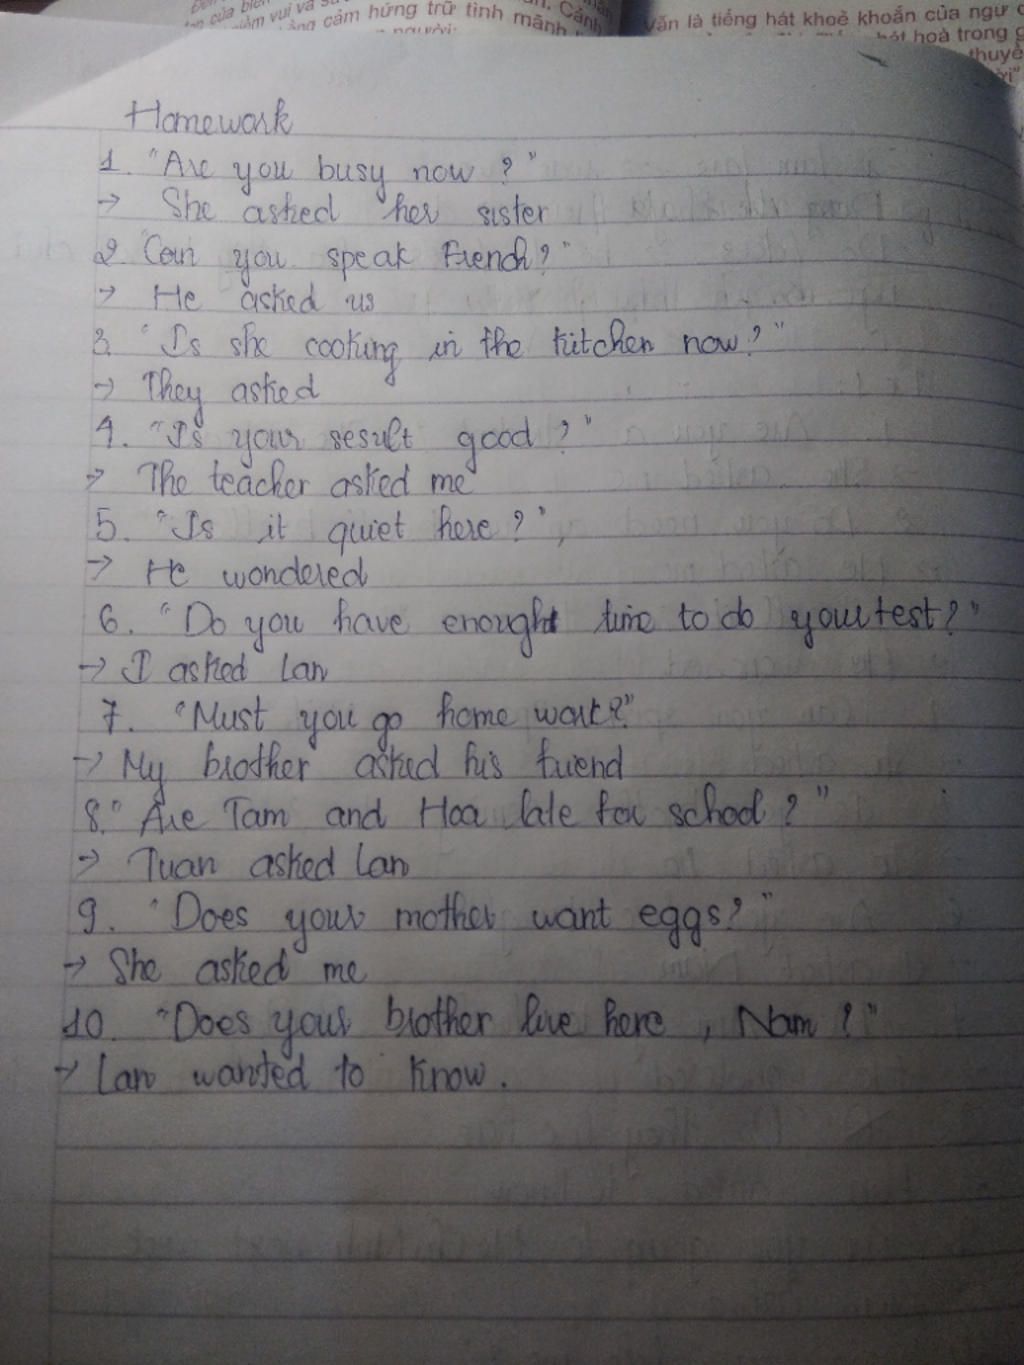 của biển
niềm vui và
cảm hứng trữ tình mãnh
người:
Cảnh
văn là tiếng hát khoẻ khoắn của ngư
hát hoà trong
thuyề
Homework
1. "Are you busy now?"
→ She asked her sister
2. Can you speak French?"
→ He asked us
3. "Is she cooking in the kitchen now?"
→ They asked
4. "Is your result good?"
→ The teacher asked me
5. "Is it quiet here?"
→ He wondered
6. "Do you have enought time to do your test?"
→ I asked Lan
7. "Must you go home work?"
→ My brother asked his friend
8. "Are Tam and Hoa late for school?"
→ Tuan asked Lan
9. "Does your mother want eggs?"
→ She asked me
10. "Does your brother live here, Nam?"
→ Lan wanted to know.